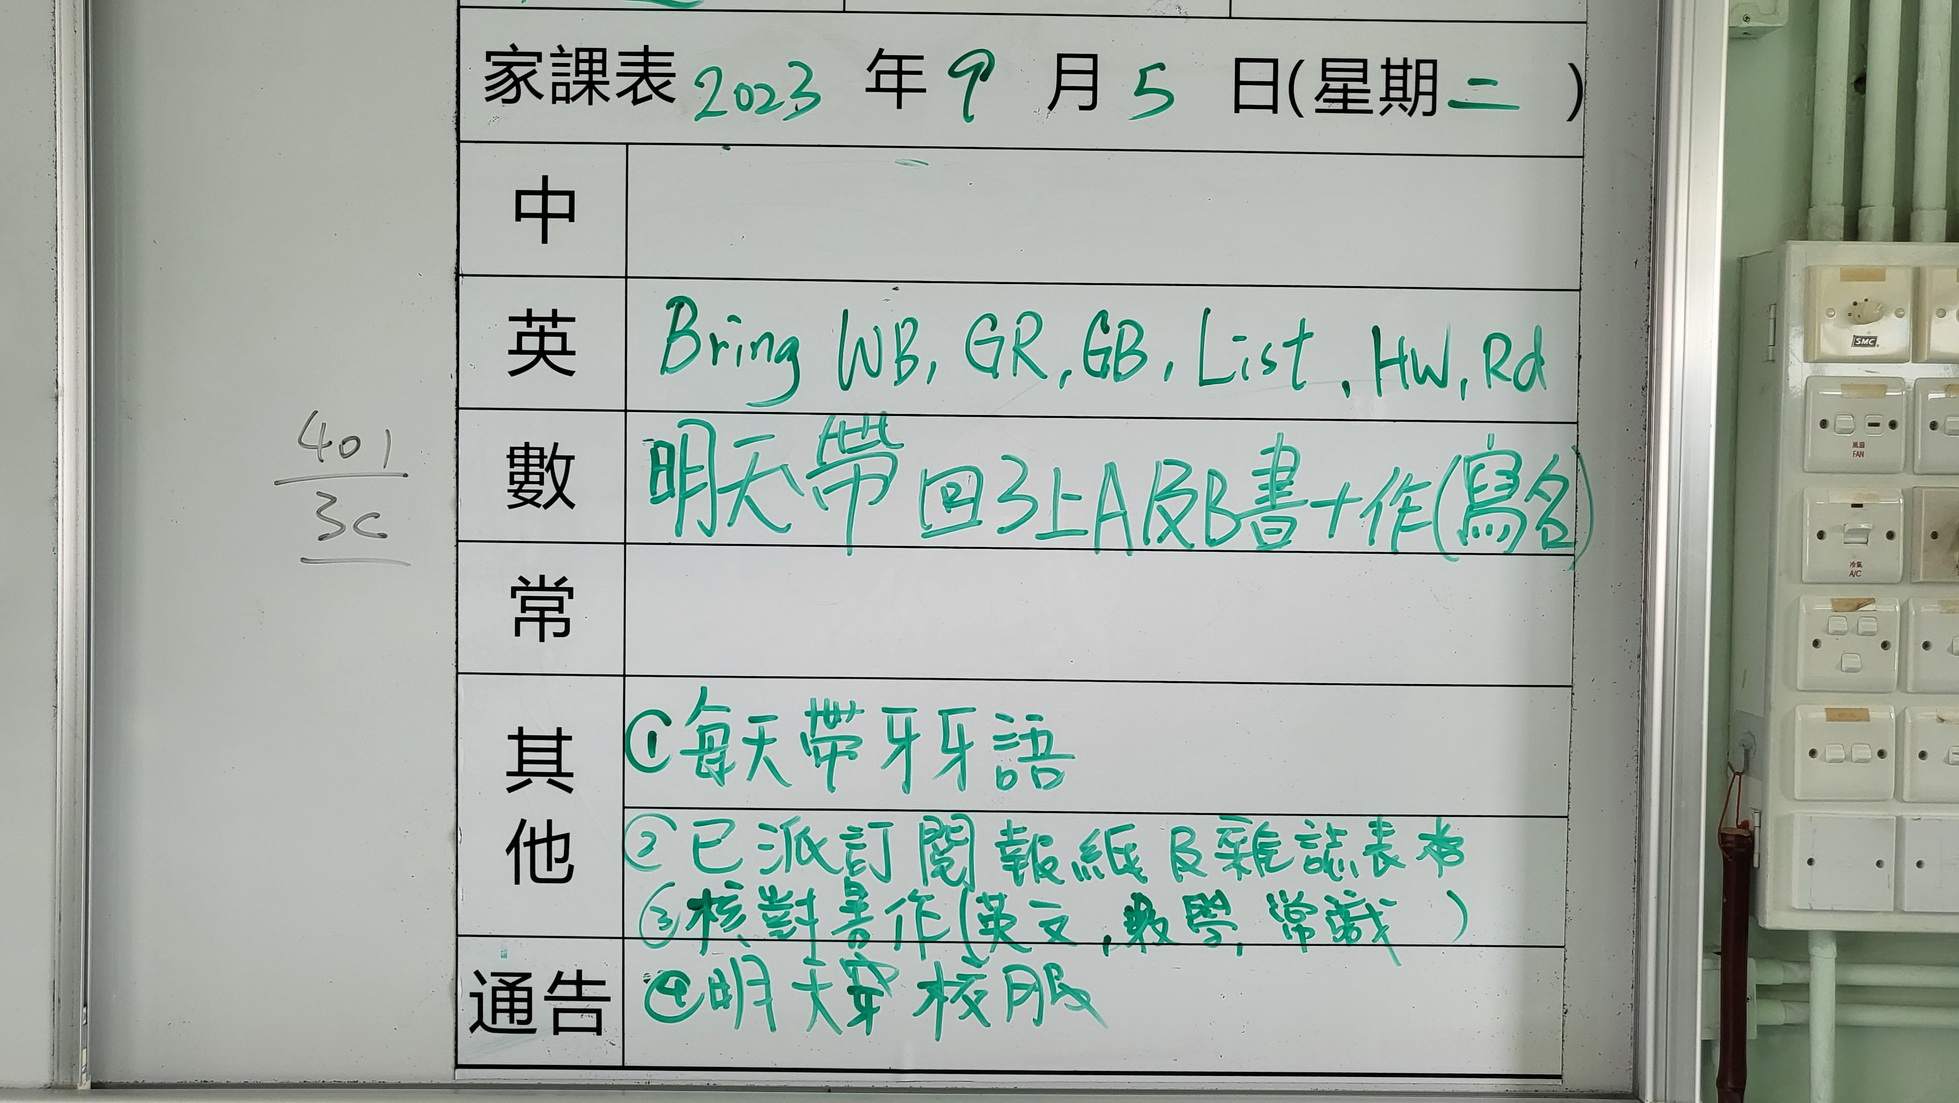 家課表 2023 年 9 月 5 日(星期二 )
中
英 Bring WB, GR, GB, List, HW, Rd
數 明天帶回3上A及B書+作(寫名)
常
其他
①每天帶牙牙語
②已派訂閱報紙及雜誌表格
③核對書作(英文,數學,常識 )
通告 ④明天穿校服
401
3C
SMC
風扇
FAN
冷氣
A/C